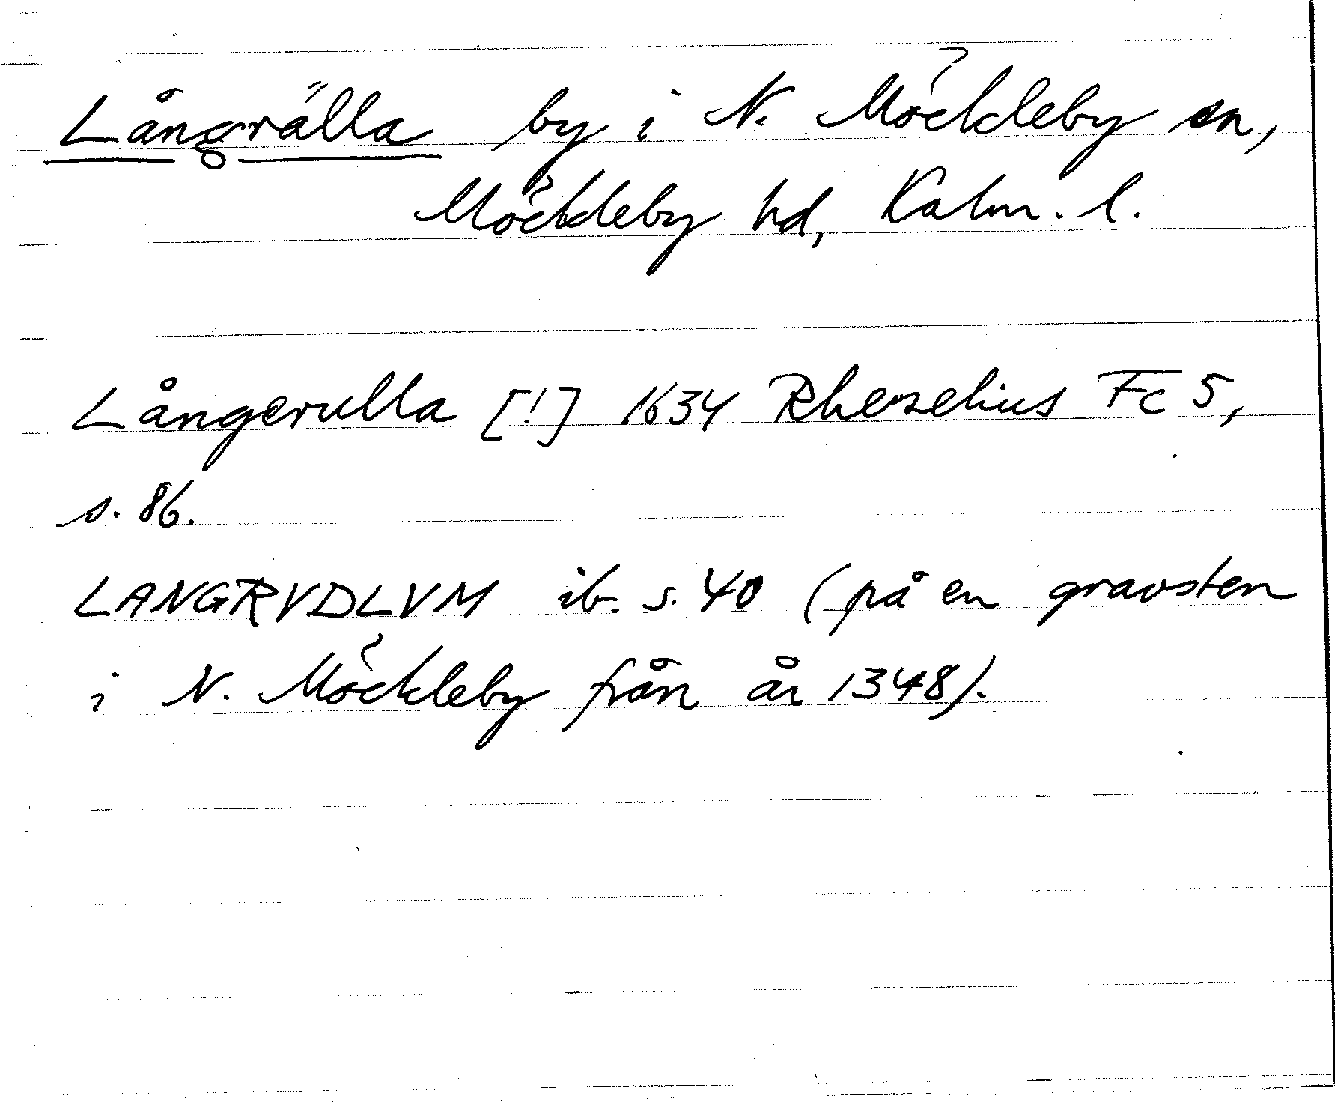 Långrälla by i N. Möckleby sn,
Möckleby hd, Kalm. l.
Långerulla [!] 1634 Rhezelius Fc 5,
s. 86.
LANGRVDLVM ib. s. 40 (på en gravsten
i N. Möckleby från år 1348).